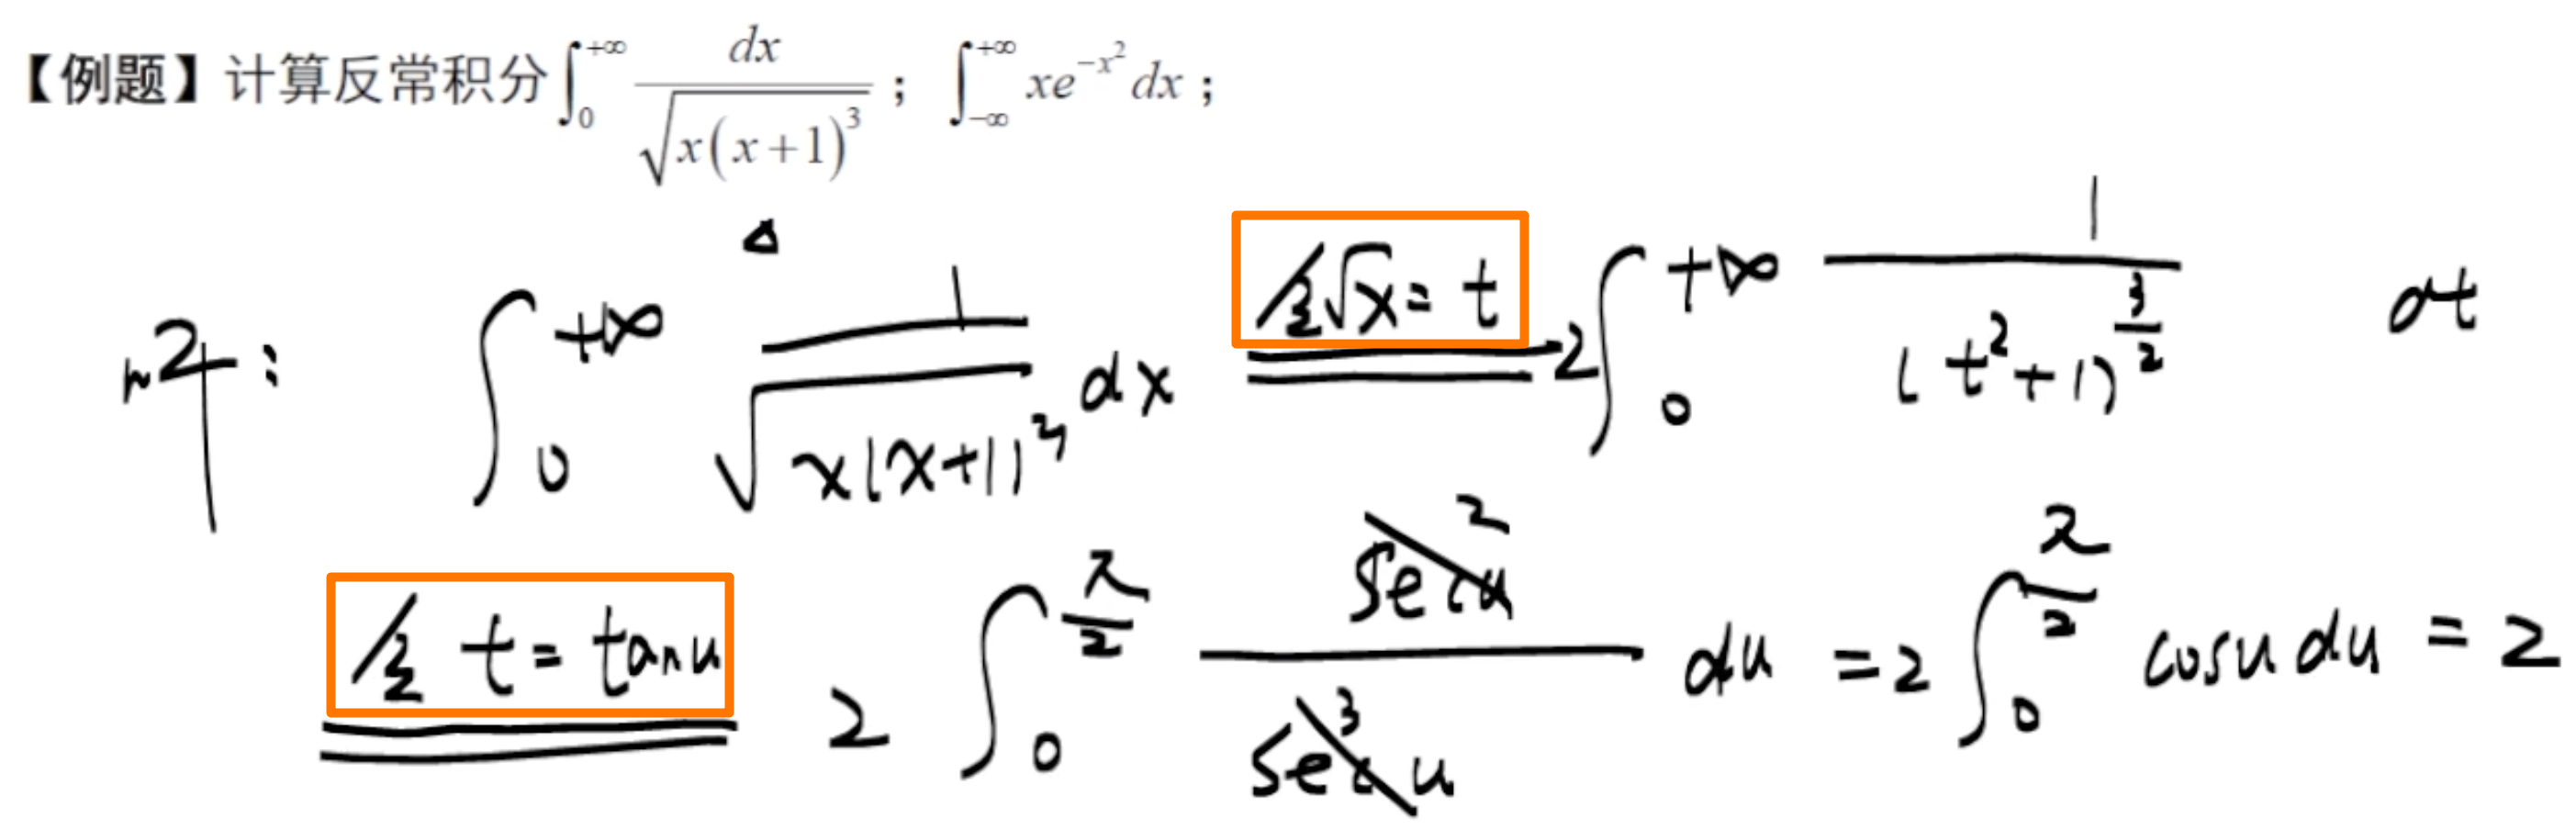 【例题】计算反常积分∫₀^{+∞} dx/√(x(x+1)³) ; ∫_{-∞}^{+∞} xe^{-x²}dx ;
∫₀^{+∞} 1/√(x(x+1)³) dx 令√x = t 2∫₀^{+∞} 1/(t²+1)^{3/2} dt
令 t = tanu 2∫₀^{π/2} sec²u/sec³u du = 2∫₀^{π/2} cosu du = 2